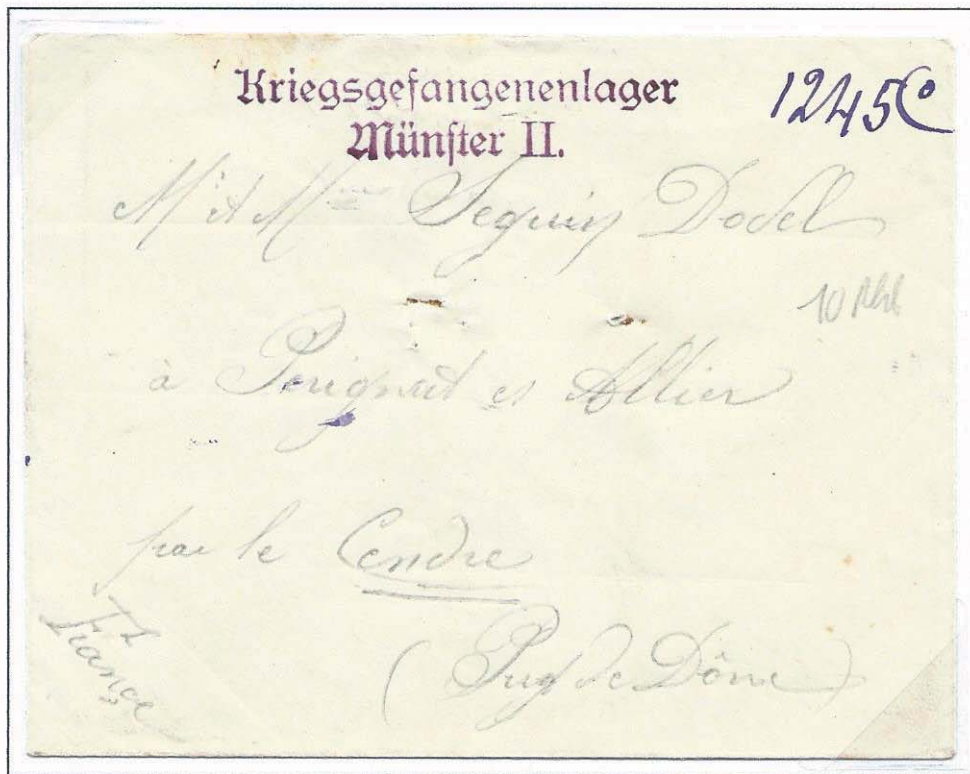 Kriegsgefangenenlager
Münster II.
1245
Mr et Mme Seguin Dodel
10
à Perignat es Allier
par le Cendre
(Puy de Dôme)
France